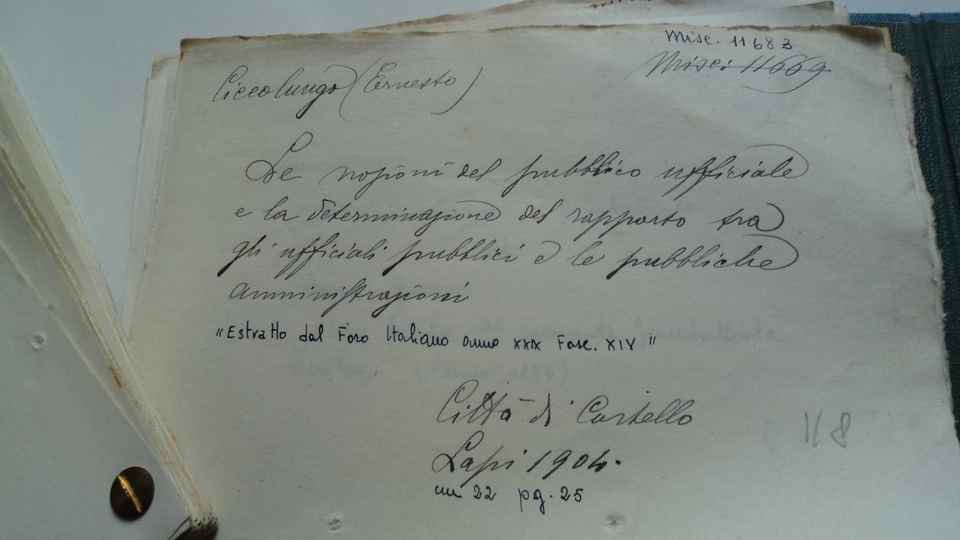 Misc. 11683
Misc. 11669
Ciccolungo (Ernesto)
Le nozioni del pubblico ufficiale
e la determinazione del rapporto tra
gli ufficiali pubblici e le pubbliche
amministrazioni
"Estratto dal Foro Italiano anno XXIX Fasc. XIV"
Città di Castello
Lapi 1904.
cm 22 pg. 25